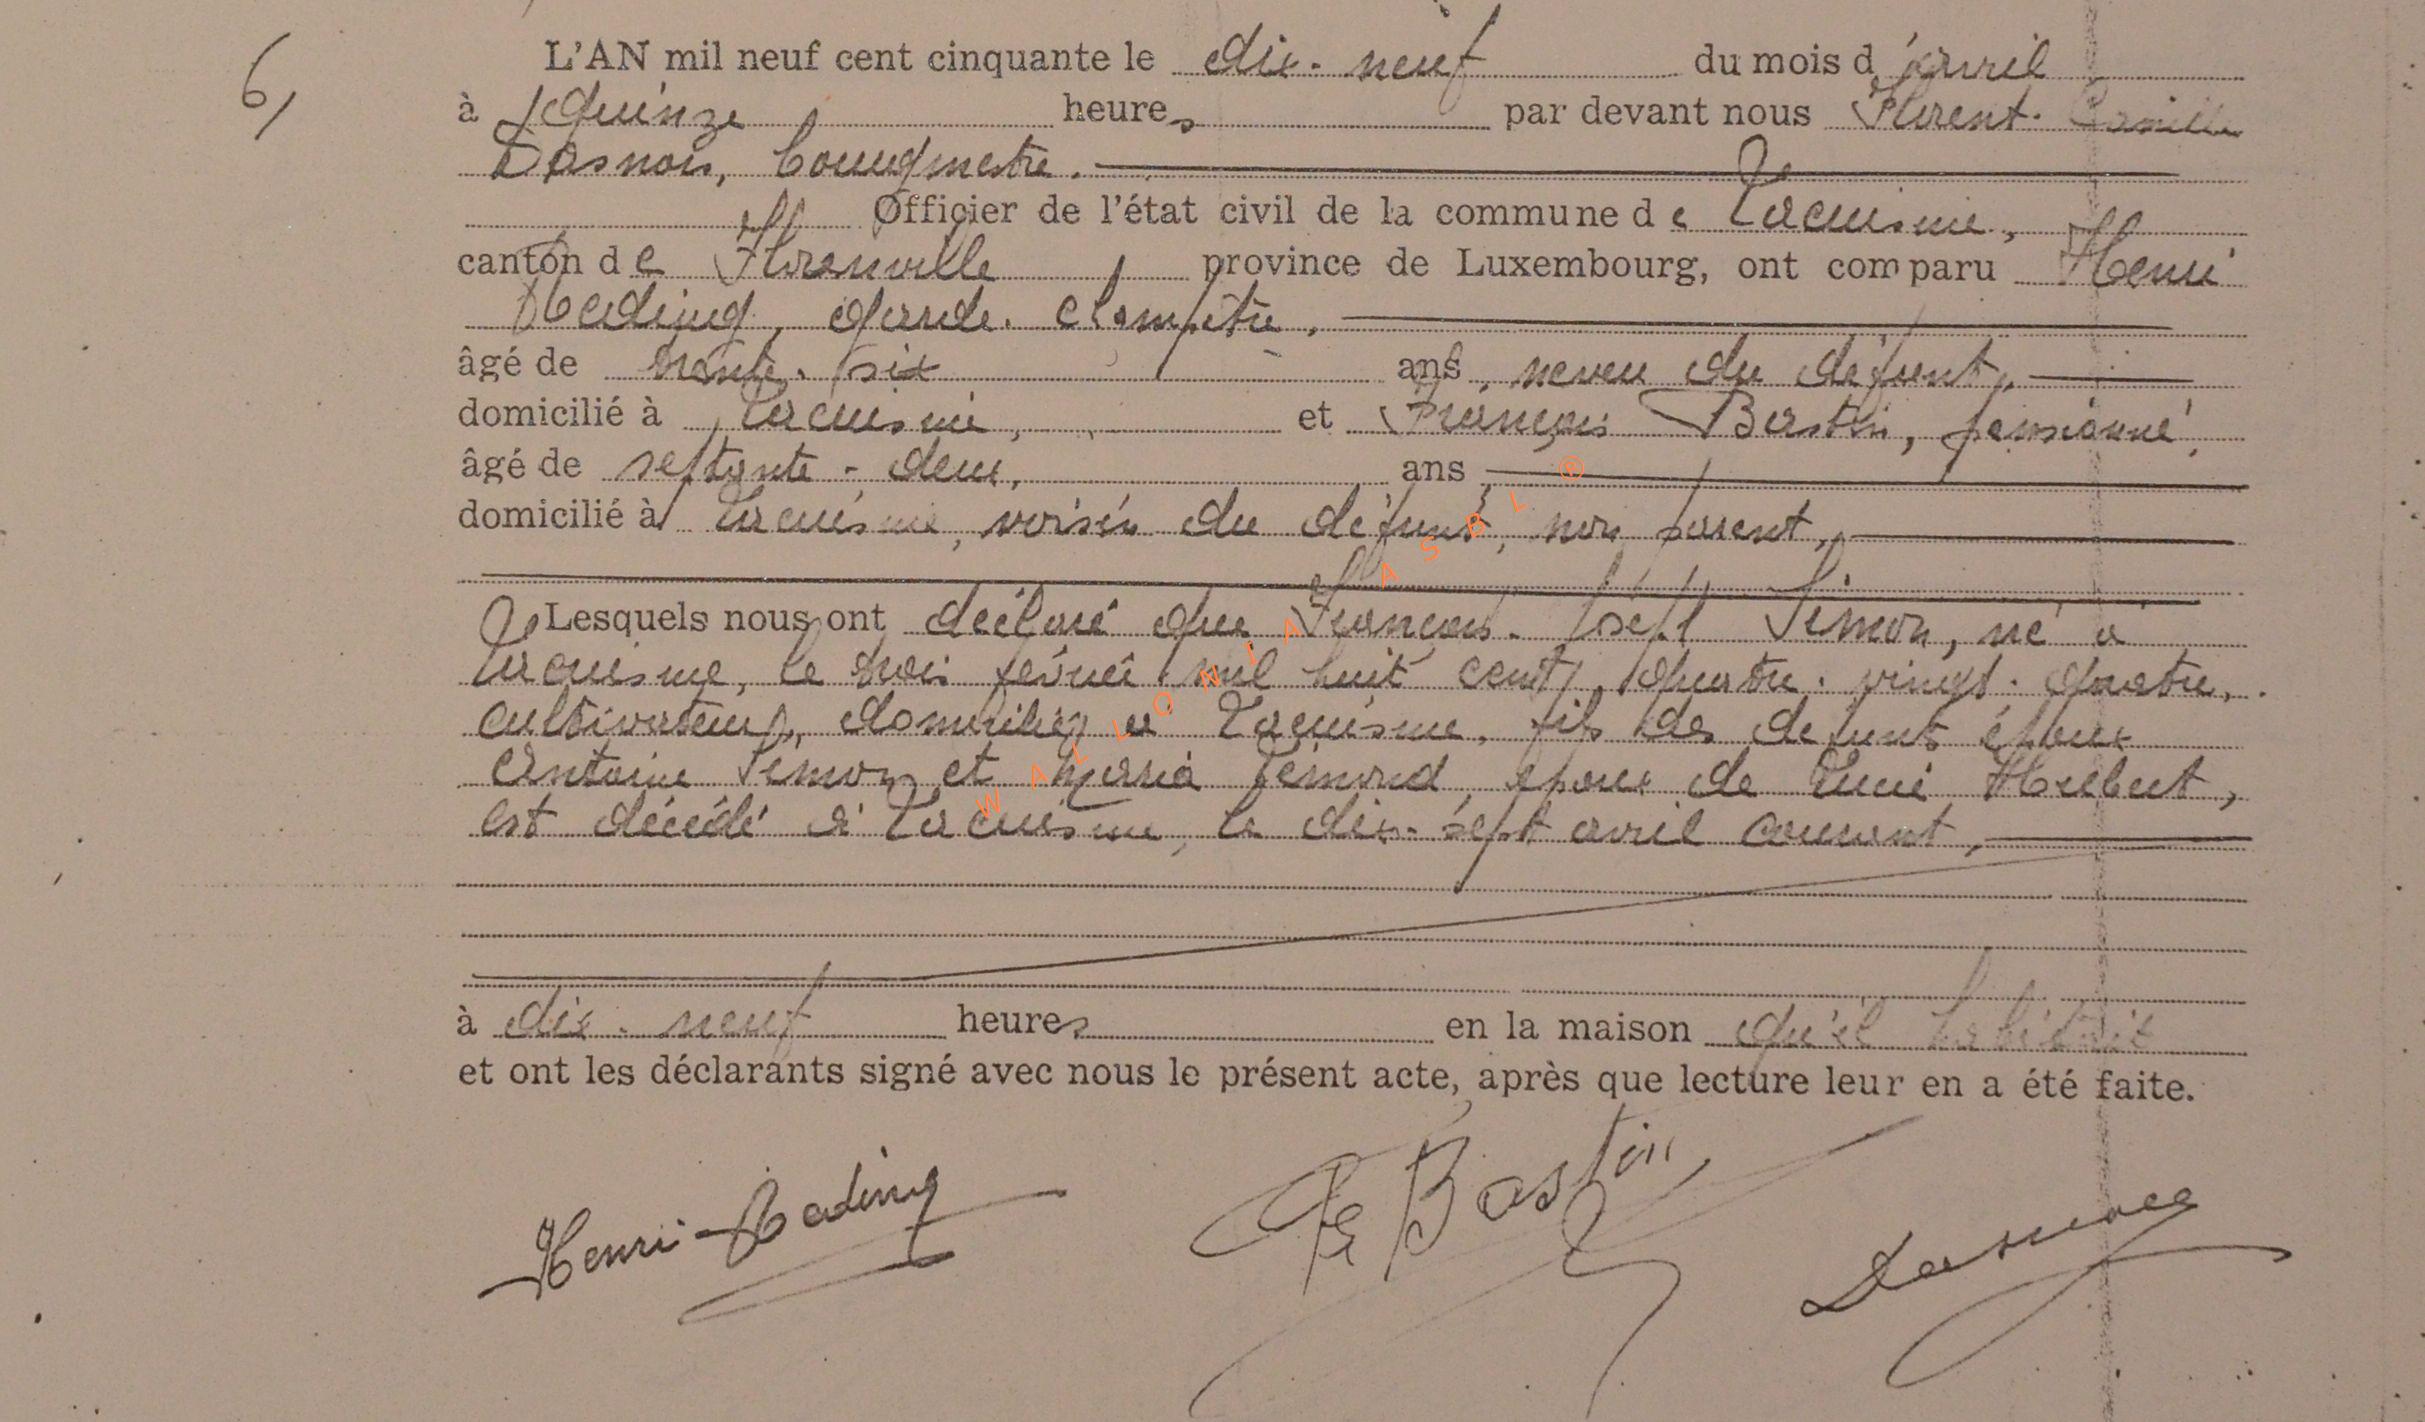 6,
L'AN mil neuf cent cinquante le dix-neuf du mois d'avril
à quinze heures par devant nous Florent-Camille
Dasnois, bourgmestre.
Officier de l'état civil de la commune de Lacuisine,
canton de Florenville, province de Luxembourg, ont comparu Henri
Hading, garde-champêtre,
âgé de trente-six ans, neveu du défunt,
domicilié à Lacuisine, et François Bastin, pensionné,
âgé de septante-deux, ans
domicilié à Lacuisine, voisin du défunt, non parent,
Lesquels nous ont déclaré que François-Joseph Simon, né à
Lacuisine, le trois février mil huit cent quatre-vingt-quatre,
cultivateur, domicilié à Lacuisine, fils des défunts époux
Antoine Simon et Maria Jémond, époux de Hubert,
est décédé à Lacuisine, le dix-sept avril courant,
à dix-neuf heures en la maison qu'il habitait
et ont les déclarants signé avec nous le présent acte, après que lecture leur en a été faite.
Henri Hading Bastin Dasnois
WALLONIA ASBL ®